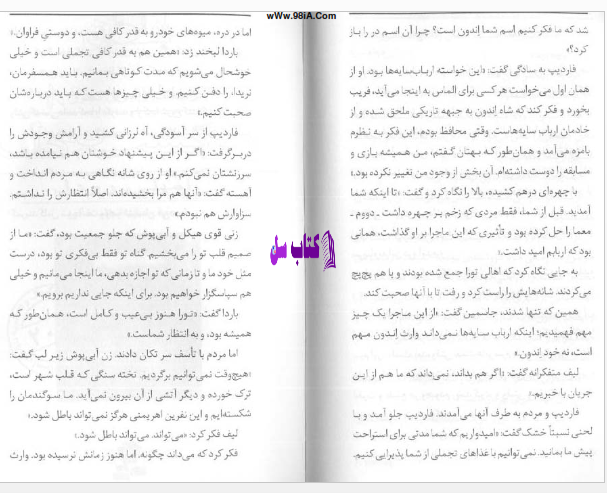 wWw.98iA.Com
شد که ما فکر کنیم اسم شما اِندون است؟ چرا آن اسم در را باز
کرد؟»
فاردیپ به سادگی گفت: «این خواسته ارباب‌سایه‌ها بود. او از
همان اول می‌خواست هر کسی برای الماس به اینجا می‌آید، فریب
بخورد و فکر کند که شاه اِندون به جبهه تاریکی ملحق شده و از
خادمان ارباب سایه‌هاست. وقتی محافظ بودم، این فکر به نظرم
بامزه می‌آمد و همان‌طور که بهتان گفتم، من همیشه بازی و
مسابقه را دوست داشته‌ام. آن بخش از وجود من تغییر نکرده بود.»
با چهره‌ای درهم کشیده، بالا را نگاه کرد و گفت: «تا اینکه شما
آمدید. قبل از شما، فقط مردی که زخم بر چهره داشت ـ دووم ـ
معما را حل کرده بود و تأثیری که این ماجرا بر او گذاشت، همانی
بود که اربابم امید داشت.»
به جایی نگاه کرد که اهالی تورا جمع شده بودند و با هم پچ‌پچ
می‌کردند. شانه‌هایش را راست کرد و رفت تا با آنها صحبت کند.
همین که تنها شدند، جاسمین گفت: «از این ماجرا یک چیز
مهم فهمیدیم؛ اینکه ارباب سایه‌ها نمی‌داند وارث اِندون مهم
است، نه خود اِندون.»
لیف متفکرانه گفت: «اگر هم بداند، نمی‌داند که ما هم از این
جریان با خبریم.»
فاردیپ و مردم به طرف آنها می‌آمدند. فاردیپ جلو آمد و با
لحنی نسبتاً خشک گفت: «امیدواریم که شما مدتی برای استراحت
پیش ما بمانید. نمی‌توانیم با غذاهای تجملی از شما پذیرایی کنیم.
اما در دره، میوه‌های خودرو به قدر کافی هست، و دوستیِ فراوان.»
باردا لبخند زد: «همین هم به قدر کافی تجملی است و خیلی
خوشحال می‌شویم که مدت کوتاهی بمانیم. باید همسفرمان،
نریدا، را دفن کنیم. و خیلی چیزها هست که باید درباره‌شان
صحبت کنیم.»
فاردیپ از سر آسودگی، آه لرزانی کشید و آرامش وجودش را
دربرگرفت: «اگر از این پیشنهاد خوشتان هم نیامده باشد،
سرزنشتان نمی‌کنم.» او از روی شانه نگاهی به مردم انداخت و
آهسته گفت: «آنها هم مرا بخشیده‌اند. اصلاً انتظارش را نداشتم.
سزاوارش هم نبودم.»
زنی قوی هیکل و آبی‌پوش که جلو جمعیت بود، گفت: «ما از
صمیم قلب تو را می‌بخشیم. گناه تو فقط بی‌فکری تو بود، درست
مثل خود ما و تا زمانی که تو اجازه بدهی، ما اینجا می‌مانیم و خیلی
هم سپاسگزار خواهیم بود. برای اینکه جایی نداریم برویم.»
باردا گفت: «تورا هنوز بی‌عیب و کامل است، همان‌طور که
همیشه بود، و به انتظار شماست.»
اما مردم با تأسف سر تکان دادند. زن آبی‌پوش زیر لب گفت:
«هیچ‌وقت نمی‌توانیم برگردیم. تخته سنگی که قلب شهر است،
ترک خورده و دیگر آتشی از آن بیرون نمی‌آید. ما سوگندمان را
شکسته‌ایم و این نفرین اهریمنی هرگز نمی‌تواند باطل شود.»
لیف فکر کرد: «می‌تواند. می‌تواند باطل شود.»
فکر کرد که می‌داند چگونه. اما هنوز زمانش نرسیده بود. وارث
کتاب سل